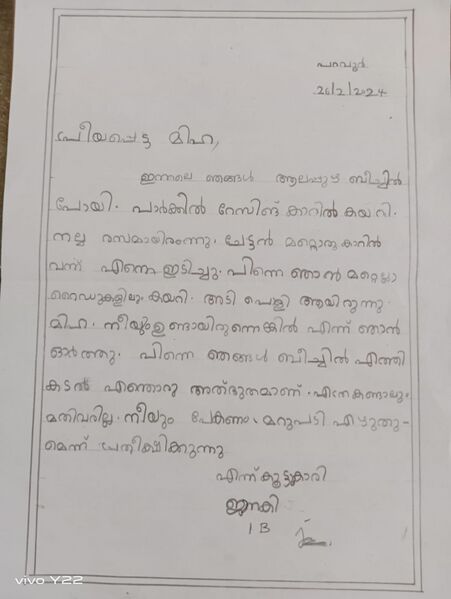 പറവൂർ
26/2/2024
പ്രീയപ്പെട്ട മിഹ,
ഇന്നലെ ഞങ്ങൾ ആലപ്പുഴ ബീച്ചിൽ
പോയി. പാർക്കിൽ റേസിങ് കാറിൽ കയറി.
നല്ല രസമായിരുന്നു. ചേട്ടൻ മറ്റൊരു കാറിൽ
വന്ന് എന്നെ ഇടിച്ചു. പിന്നെ ഞാൻ മറ്റെല്ലാ
റൈഡുകളിലും കയറി. അടി പൊളി ആയിരുന്നു.
മിഹ. നീയും ഉണ്ടായിരുന്നെങ്കിൽ എന്ന് ഞാൻ
ഓർത്തു. പിന്നെ ഞങ്ങൾ ബീച്ചിൽ എത്തി
കടൽ എന്തൊരു അത്ഭുതമാണ്. എത്ര കണ്ടാലും
മതിവരില്ല. നീയും പോകണം. മറുപടി എഴുതു-
മെന്ന് പ്രതീക്ഷിക്കുന്നു
എന്ന് കൂട്ടുകാരി
ജാനകി
1 B
vivo Y22